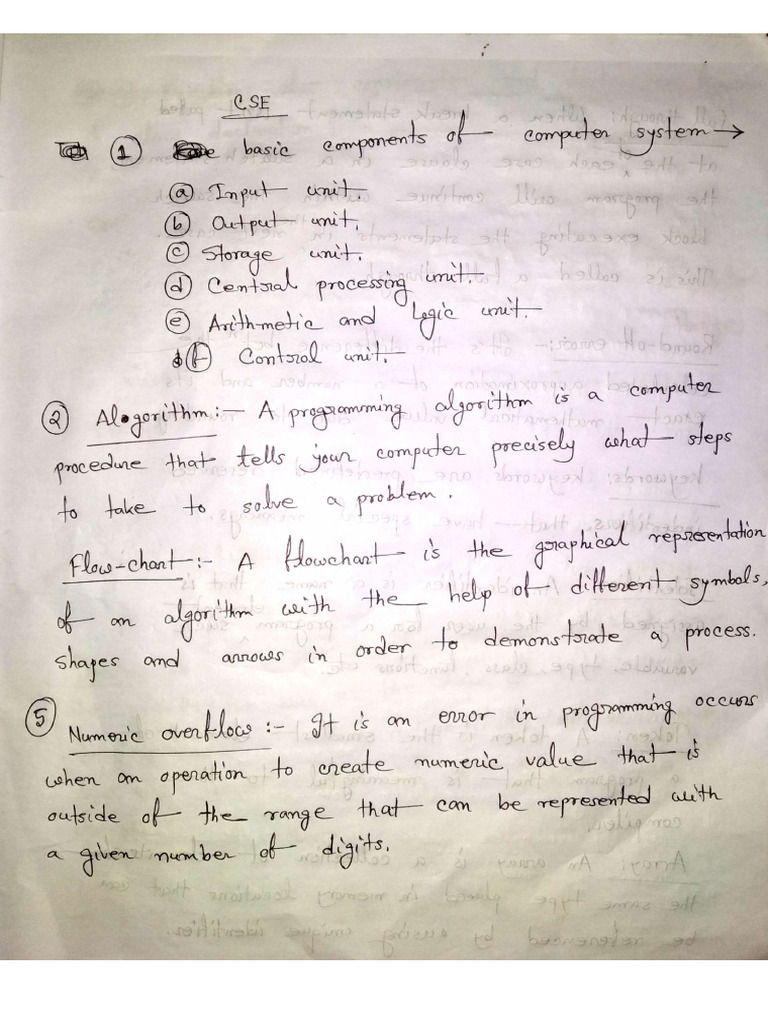 CSE
① basic components of computer system →
ⓐ Input unit.
ⓑ Output unit.
ⓒ Storage unit.
ⓓ Central processing unit.
ⓔ Arithmetic and Logic unit.
ⓕ Control unit.
② Algorithm:- A programming algorithm is a computer
procedure that tells your computer precisely what steps
to take to solve a problem.
Flow-chart:- A flowchart is the graphical representation
of an algorithm with the help of different symbols,
shapes and arrows in order to demonstrate a process.
⑤ Numeric overflow:- It is an error in programming occurs
when an operation to create numeric value that is
outside of the range that can be represented with
a given number of digits.